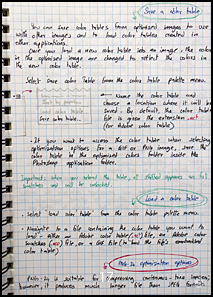 Save a color table
You can save color tables from optimized images to use
with other images and to load color tables created in
other applications.
you load a new color table into an image, the colors
in the optimized image are changed to reflect the colors in
the new color table.
Select Save Color Table from the color table palette menu.
Name the color table and
choose a location where it will be
saved. By default, the color table
file is given the extension .act
(for Adobe color table)
Save color table...
If you want to access the color table when selecting
optimization options for a GIF or PNG image, save the
color table in the optimized color tables inside the
Photoshop application folder.
Important: when you reload the table, all shifted squares are
swatches and will be unlocked.
Load a color table
Select load color table from the color table palette menu.
Navigate to a file containing the color table you want to
load - either an Adobe color table (.act) file, an Adobe color
swatches (.aco) file, or a GIF file (to load the file's embedded
color table)
PNG-24 optimization options
PNG-24 is suitable for compressing continuous-tone images;
however, it produces much larger files than JPEG format.